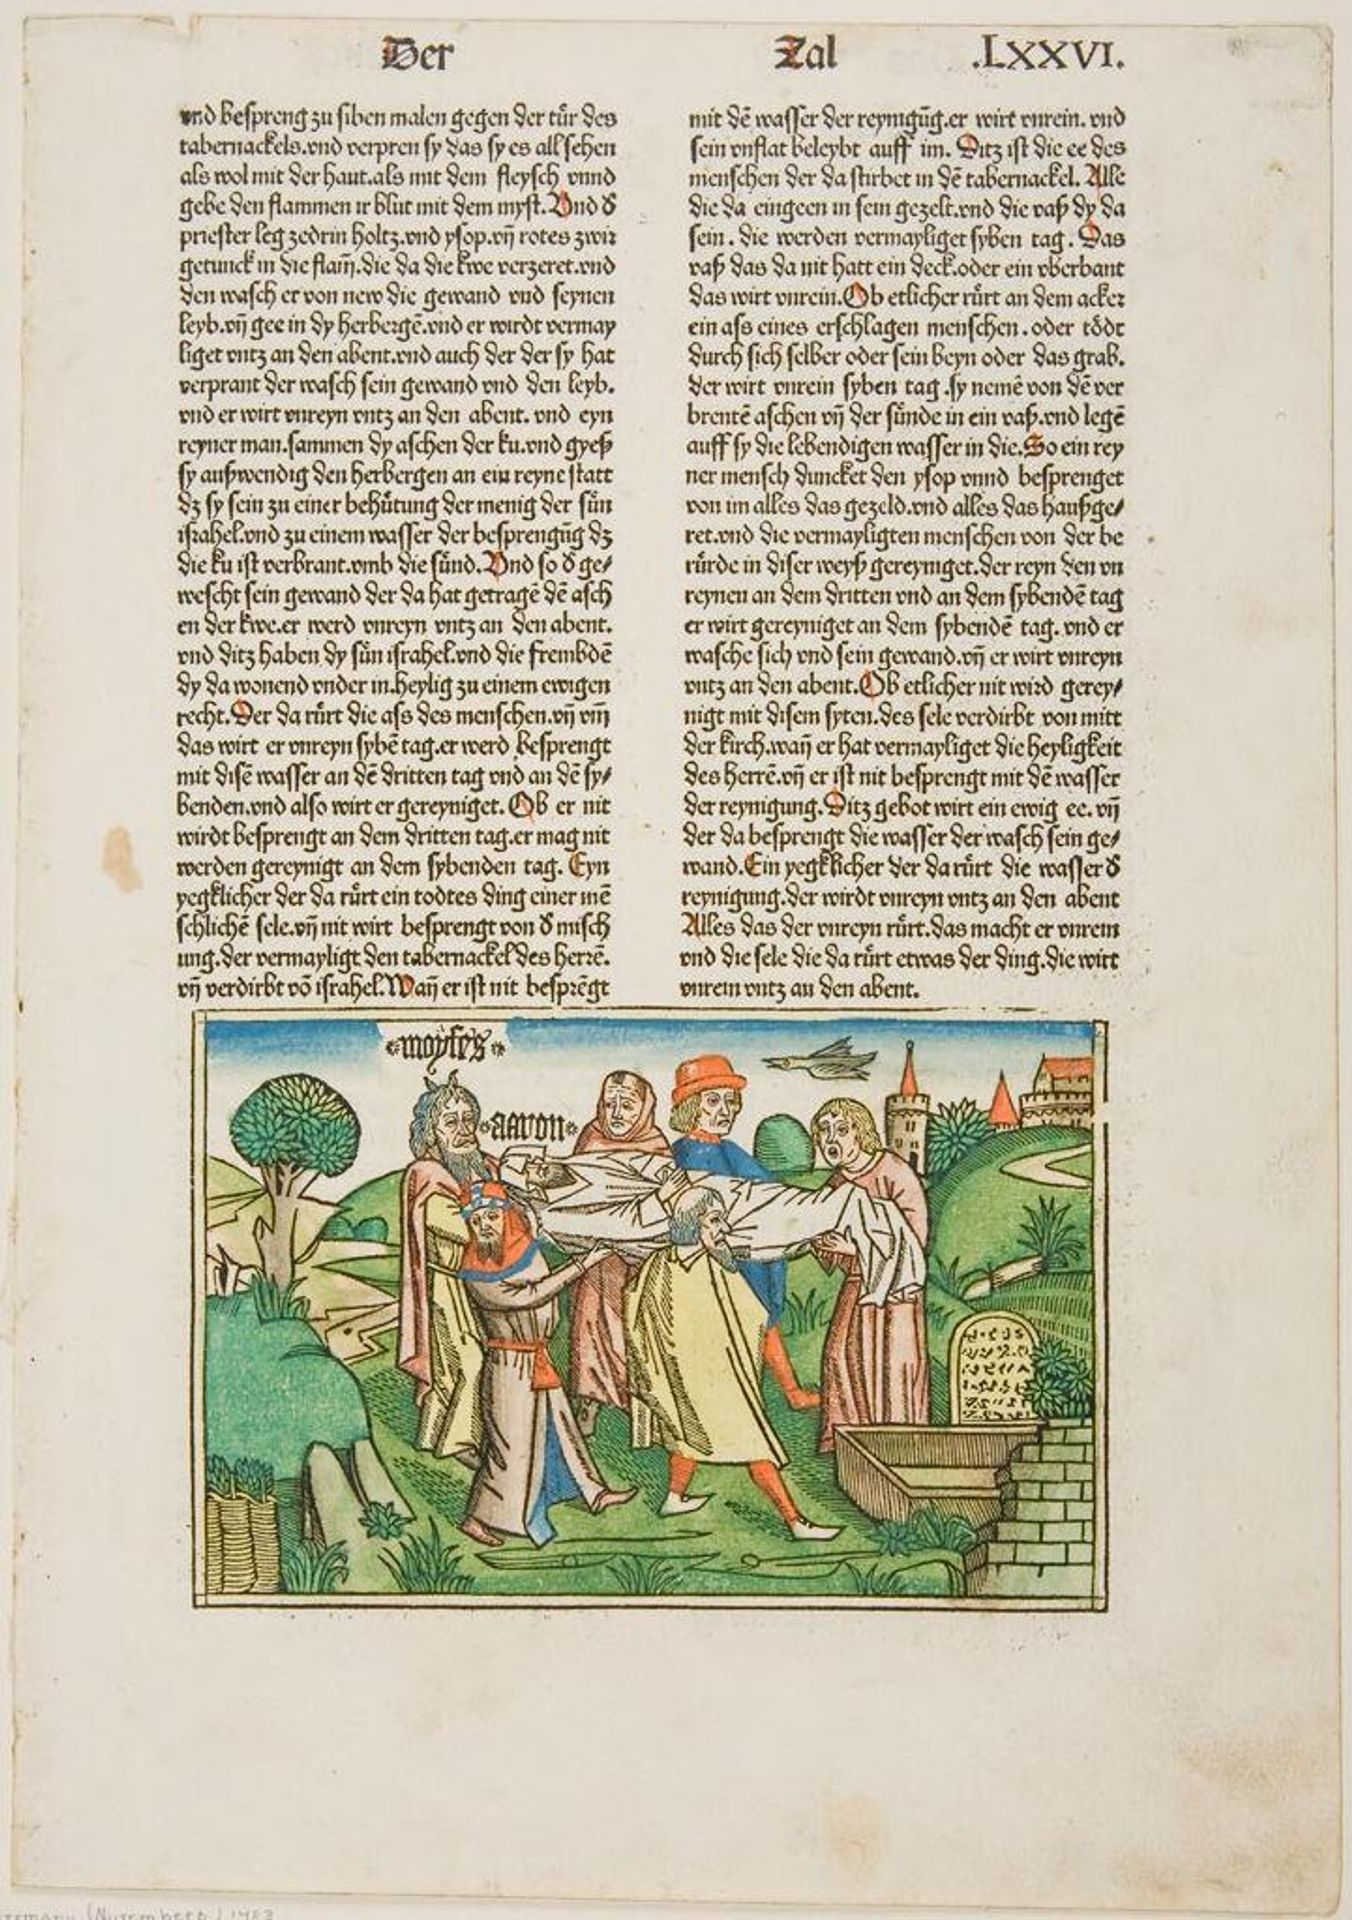 Der Zal .LXXVI.
vnd bespreng zu siben malen gegen der tür des
tabernackels.vnd verpren sy das sy es all sehen
als wol mit der haut.als mit dem fleysch vnnd
gebe den flammen ir blut mit dem myst.Vnd d̕
priester leg zedrin holtz.vnd ysop.vn̄ rotes zwir
getunck in die flam̄.die da die kwe verzeret.vnd
den wasch er von new die gewand vnd seynen
leyb.vn̄ gee in dy herbergē.vnd er wirdt vermay
liget vntz an den abent.vnd auch der der sy hat
verprant der wasch sein gewand vnd den leyb.
vnd er wirt vnreyn vntz an den abent. vnd eyn
reyner man.sammen dy aschen der ku.vnd gyeß
sy außwendig den herbergen an ein reyne statt
dz sy sein zu einer behütung der menig der sün
israhel.vnd zu einem wasser der besprengūg dz
die ku ist verbrant.vmb die sünd.Vnd so d̕ ge/
wescht sein gewand der da hat getragē dē asch
en der kwe.er werd vnreyn vntz an den abent.
vnd ditz haben dy sün israhel.vnd die frembdē
dy da wonend vnder in.heylig zu einem ewigen
recht.Der da rürt die ass des menschen.vn̄ vm̄
das wirt er vnreyn sybē tag.er werd besprengt
mit disē wasser an dē dritten tag vnd an dē sy/
benden.vnd also wirt er gereyniget. Ob er nit
wirdt besprengt an dem dritten tag.er mag nit
werden gereynigt an dem sybenden tag. Eyn
yegklicher der da rürt ein todtes ding einer mē
schlichē sele.vn̄ nit wirt besprengt von d̕ misch
ung.der vermayligt den tabernackel des herrē.
vn̄ verdirbt vō israhel.Wan̄ er ist nit besprēgt
mit dē wasser der reynigūg.er wirt vnrein. vnd
sein vnflat beleybt auff im. Ditz ist die ee des
menschen der da stirbet in dē tabernackel. Alle
die da eingeen in sein gezelt.vnd die vaß dy da
sein. die werden vermayliget syben tag. Das
vaß das da nit hatt ein deck.oder ein vberbant
das wirt vnrein.Ob etlicher rürt an dem acker
ein ass eines erschlagen menschen.oder tödt
durch sich selber oder sein beyn oder das grab.
der wirt vnrein syben tag.sy nemē von dē ver
brentē aschen vn̄ der sünde in ein vaß.vnd legē
auff sy die lebendigen wasser in die.So ein rey
ner mensch duncket den ysop vnnd besprenget
von im alles das gezeld.vnd alles das haußge/
ret.vnd die vermayligten menschen von der be
rürde in diser weyß gereyniget.der reyn den vn
reynen an dem dritten vnd an dem sybendē tag
er wirt gereyniget an dem sybendē tag. vnd er
wasche sich vnd sein gewand.vn̄ er wirt vnreyn
vntz an den abent.Ob etlicher nit wird gerey/
nigt mit disem syten.des sele verdirbt von mitt
der kirch.wan̄ er hat vermayliget die heyligkeit
des herrē.vn̄ er ist nit besprengt mit dē wasser
der reynigung.Ditz gebot wirt ein ewig ee. vn̄
der da besprengt die wasser der wasch sein ge/
wand.Ein yegklicher der da rürt die wasser d̕
reynigung.der wirdt vnreyn vntz an den abent
Alles das der vnreyn rürt.das macht er vnrein
vnd die sele die da rürt etwas der ding.die wirt
vnrein vntz an den abent.
moyses
aaron
(Nuremberg) 1483